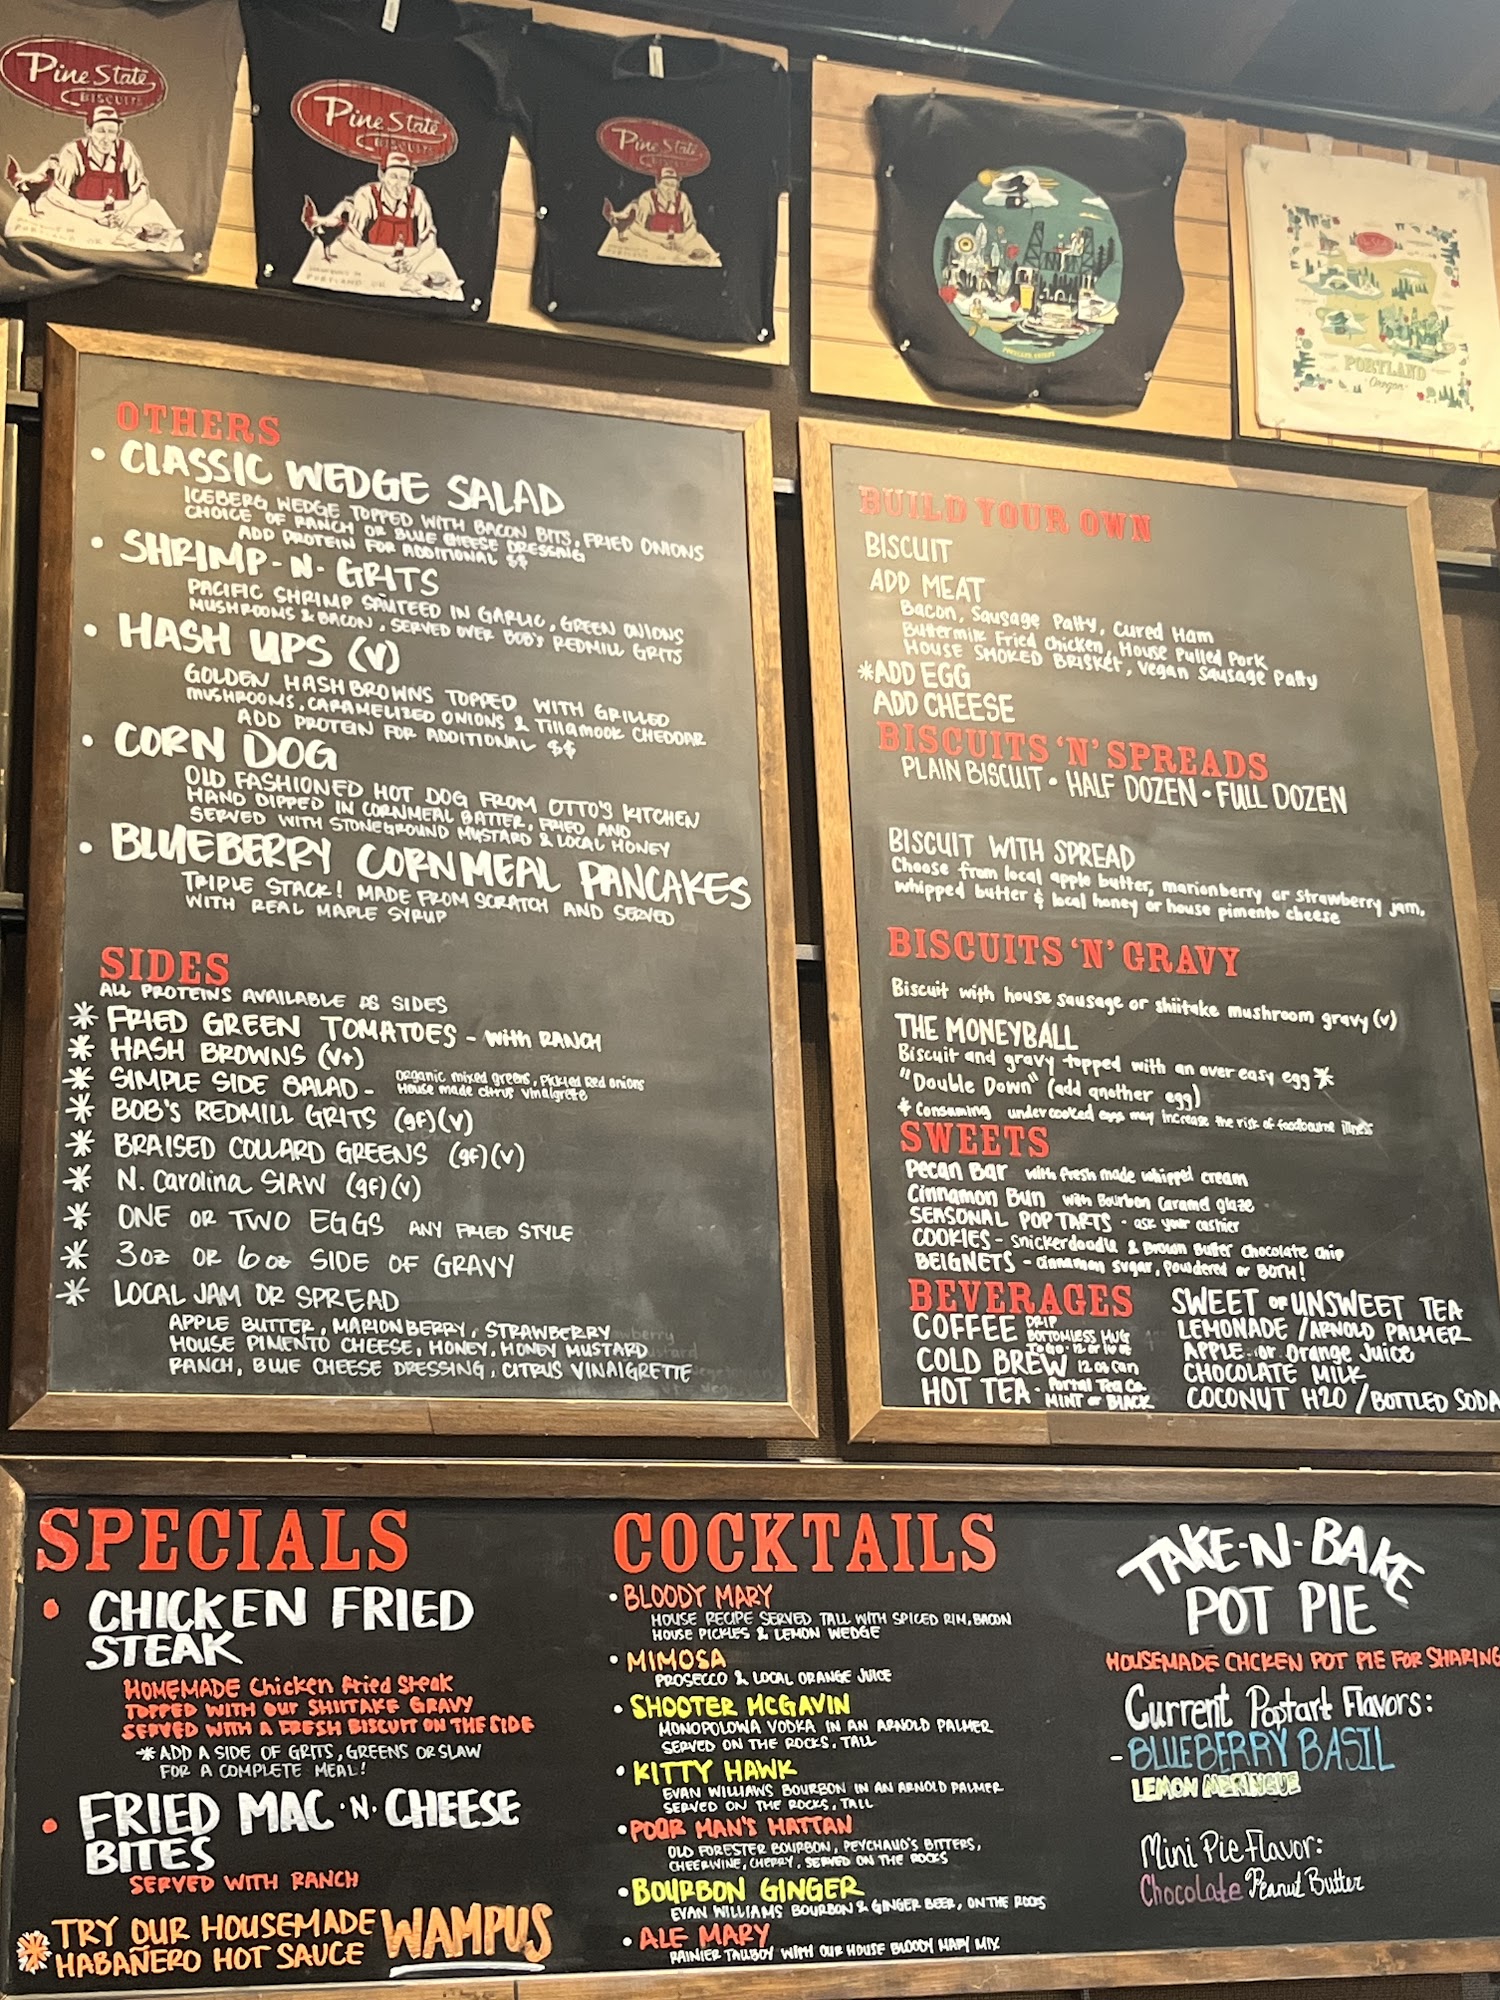 Pine State
BISCUITS
Pine State
BISCUITS
PORTLAND, OR
Pine State
BISCUITS
PORTLAND
Oregon
OTHERS
• CLASSIC WEDGE SALAD
ICEBERG WEDGE TOPPED WITH BACON BITS, FRIED ONIONS
CHOICE OF RANCH OR BLUE CHEESE DRESSING
ADD PROTEIN FOR ADDITIONAL $$
• SHRIMP-N-GRITS
PACIFIC SHRIMP SAUTEED IN GARLIC, GREEN ONIONS
MUSHROOMS & BACON, SERVED OVER BOB'S REDMILL GRITS
• HASH UPS (V)
GOLDEN HASHBROWNS TOPPED WITH GRILLED
MUSHROOMS, CARAMELIZED ONIONS & Tillamook CHEDDAR
ADD PROTEIN FOR ADDITIONAL $$
• CORN DOG
OLD FASHIONED HOT DOG FROM OTTO'S KITCHEN
HAND DIPPED IN CORNMEAL BATTER, FRIED AND
SERVED WITH STONEGROUND MUSTARD & LOCAL HONEY
• BLUEBERRY CORNMEAL PANCAKES
TRIPLE STACK! MADE FROM SCRATCH AND SERVED
WITH REAL MAPLE SYRUP
SIDES
ALL PROTEINS AVAILABLE AS SIDES
* FRIED GREEN TOMATOES - with RANCH
* HASH BROWNS (V+)
* SIMPLE SIDE SALAD - organic mixed greens, Pickled Red onions
House made citrus vinaigrette
* BOB'S REDMILL GRITS (gf)(v)
* BRAISED COLLARD GREENS (gf)(v)
* N. Carolina SLAW (gf)(v)
* ONE OR TWO EGGS ANY FRIED STYLE
* 3oz OR 6oz SIDE OF GRAVY
* LOCAL JAM OR SPREAD
APPLE BUTTER, MARIONBERRY, STRAWBERRY
HOUSE PIMENTO CHEESE, HONEY, HONEY MUSTARD
RANCH, BLUE CHEESE DRESSING, CITRUS VINAIGRETTE
BUILD YOUR OWN
BISCUIT
ADD MEAT
Bacon, Sausage Patty, Cured Ham
Buttermilk Fried Chicken, House Pulled Pork
HOUSE SMOKED BRISKET, Vegan Sausage Patty
*ADD EGG
ADD CHEESE
BISCUITS 'N' SPREADS
PLAIN BISCUIT • HALF DOZEN • FULL DOZEN
BISCUIT WITH SPREAD
Choose from local apple butter, marionberry or strawberry jam,
whipped butter & local honey or house pimento cheese
BISCUITS 'N' GRAVY
Biscuit with house sausage or shiitake mushroom gravy (v)
THE MONEYBALL
Biscuit and gravy topped with an over easy egg *
"Double Down" (add another egg)
* Consuming undercooked eggs may increase the risk of foodbourne illness
SWEETS
Pecan Bar with fresh made whipped cream
Cinnamon Bun with Bourbon Caramel glaze
SEASONAL POP TARTS - ask your cashier
COOKIES - Snickerdoodle & Brown Butter Chocolate Chip
BEIGNETS - cinnamon sugar, powdered or BOTH!
BEVERAGES
COFFEE DRIP
BOTTOMLESS MUG
TOGO - 12 or 16 oz
COLD BREW 12 oz can
HOT TEA - Portal Tea Co.
MINT or BLACK
SWEET or UNSWEET TEA
LEMONADE / ARNOLD PALMER
APPLE or Orange Juice
CHOCOLATE MILK
COCONUT H2O / BOTTLED SODA
SPECIALS
• CHICKEN FRIED
STEAK
HOMEMADE Chicken fried Steak
TOPPED WITH OUR SHIITAKE GRAVY
SERVED WITH A FRESH BISCUIT ON THE SIDE
*ADD A SIDE OF GRITS, GREENS OR SLAW
FOR A COMPLETE MEAL!
• FRIED MAC 'N' CHEESE
BITES
SERVED WITH RANCH
* TRY OUR HOUSEMADE
HABAÑERO HOT SAUCE WAMPUS
COCKTAILS
• BLOODY MARY
HOUSE RECIPE SERVED TALL WITH SPICED RIM, BACON
HOUSE PICKLES & LEMON WEDGE
• MIMOSA
PROSECCO & LOCAL ORANGE JUICE
• SHOOTER MCGAVIN
MONOPOLOWA VODKA IN AN ARNOLD PALMER
SERVED ON THE ROCKS, TALL
• KITTY HAWK
EVAN WILLIAMS BOURBON IN AN ARNOLD PALMER
SERVED ON THE ROCKS, TALL
• POOR MAN'S HATTAN
OLD FORESTER BOURBON, PEYCHAUD'S BITTERS,
CHEERWINE, CHERRY, SERVED ON THE ROCKS
• BOURBON GINGER
EVAN WILLIAMS BOURBON & GINGER BEER, ON THE ROCKS
• ALE MARY
RAINIER TALLBOY WITH OUR HOUSE BLOODY MARY MIX
TAKE-N-BAKE
POT PIE
HOUSEMADE CHICKEN POT PIE FOR SHARING
Current Poptart Flavors:
- BLUEBERRY BASIL
LEMON MERINGUE
Mini Pie Flavor:
Chocolate Peanut Butter